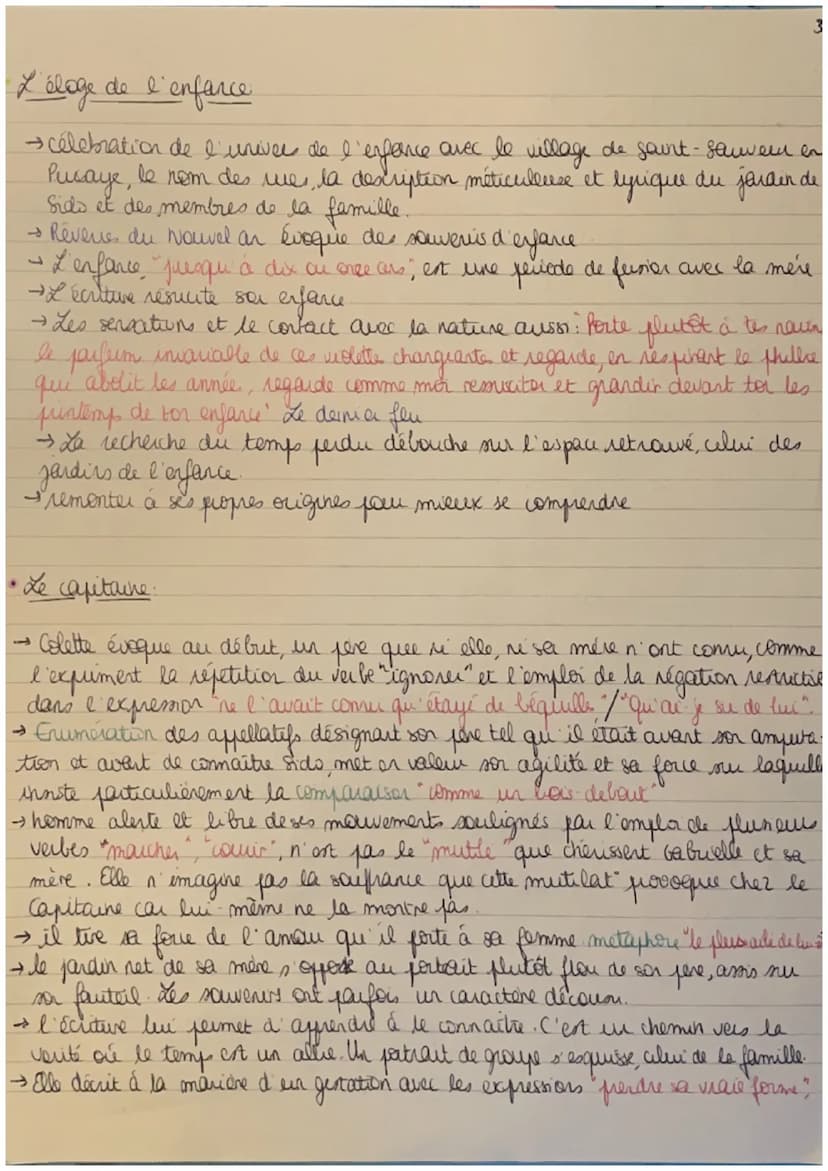 3
L'éloge de l'enfance
→ célébration de l'univers de l'enfance avec le village de Saint-Sauveur en
Puisaye, le nom des rues, la description méticuleuse et lyrique du jardin de
Sido et des membres de la famille.
→ Rêveries du Nouvel an évoque des souvenirs d'enfance
→ L'enfance, "jusqu'à dix ou onze ans", est une période de fusion avec la mère
→ L'écriture résucite son enfance
→ Les sensations et le contact avec la nature aussi: "Porte plutôt à tes narines
le parfum invariable de ces violettes changeantes et regarde, en respirant le philtre
qui abolit les année, regarde comme moi ressusciter et grandir devant toi les
printemps de ton enfance" Le dernier feu
→ La recherche du temps perdu débouche sur l'espace retrouvé, celui des
jardins de l'enfance.
→ remonter à ses propres origines pour mieux se comprendre
• Le capitaine:
→ Colette évoque au début, un père que ni elle, ni sa mère n'ont connu, comme
l'expriment la répétition du verbe "ignorer" et l'emploi de la négation restrictive
dans l'expression "ne l'avait connu qu'étayé de béquilles"/"Qu'ai-je su de lui".
→ Enumération des appellatifs désignant son père tel qu'il était avant son amputa-
tion et avant de connaître Sido, met en valeur son agilité et sa force sur laquelle
insiste particulièrement la comparaison "comme un bois debout"
→ homme alerte et libre de ses mouvements soulignés par l'emploi de plusieurs
verbes "marcher", "courir", n'est pas le "mutilé" que chérissent Gabrielle et sa
mère. Elle n'imagine pas la souffrance que cette mutilat° provoque chez le
Capitaine car lui-même ne la montre pas.
→ il tire sa force de l'amour qu'il porte à sa femme métaphore "le plus
→ le jardin net de sa mère s'oppose au portrait plutôt flou de son père, assis sur
son fauteuil. Les souvenirs ont parfois un caractère décousu.
→ l'écriture lui permet d'apprendre à le connaître. C'est un chemin vers la
vérité où le temps est un allié. Un portrait de groupe s'esquisse, celui de la famille.
→ Elle décrit à la manière d'un gestation avec les expressions "prendre sa vraie forme",